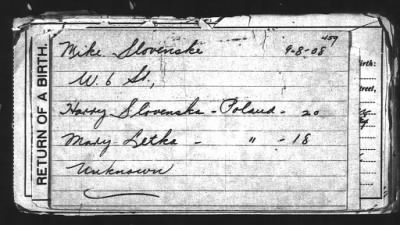 RETURN OF A BIRTH.
459
Mike Slovenski 9-8-08
W. 6 St,
Harry Slovenska - Poland - 20
Mary Letka - " - 18
Unknown
Birth:
Street,